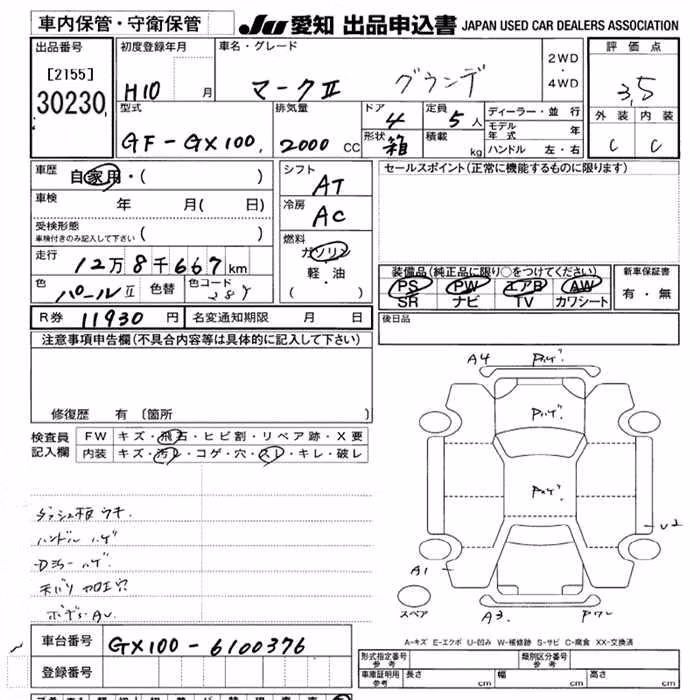 車内保管・守衛保管 JU 愛知 出品申込書 JAPAN USED CAR DEALERS ASSOCIATION
出品番号 初度登録年月 車名・グレード 2WD・4WD 評価点
[2155] 30230 H10 月 マークⅡ グランデ 3.5
型式 排気量 ドア 定員 ディーラー・並行 外装 内装
GF-GX100 2000 CC 4 5人 モデル年式 年 C C
形状 箱 積載 kg ハンドル 左・右
車歴 自家用・( ) シフト AT セールスポイント(正常に機能するものに限ります)
車検 年 月( 日) 冷房 AC
受検形態 車検付きのみ記入して下さい ( )
走行 12万8千667km 燃料 ガソリン 軽・油 ( ) 装備品(純正品に限り○をつけてください) 新車保証書
色 パールⅡ 色替 色コード PS PW エアB AW 有・無
SR ナビ TV カワシート
R券 11930 円 名変通知期限 月 日 後日品
注意事項申告欄(不具合内容等は具体的に記入して下さい)
A4 Pハゲ
Pハゲ
修復歴 有 〔箇所
検査員記入欄 FW キズ・飛石・ヒビ割・リペア跡・X要
内装 キズ・汚レ・コゲ・穴・スレ・キレ・破レ
Pハゲ
ダッシュ板ウキ
U2
ハンドルハゲ
A1
天バリ カロエ穴
スペア A3
A-キズ E-エクボ U-凹み W-補修跡 S-サビ C-腐食 XX-交換済
車台番号 GX100-6100376
登録番号
形式指定番号 参考 類別区分番号 参考
車庫証明用 参考 長さ cm 幅 cm 高さ cm